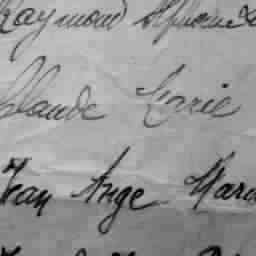 Raymond Alphonse
Claude Marie
Jean Ange Marc